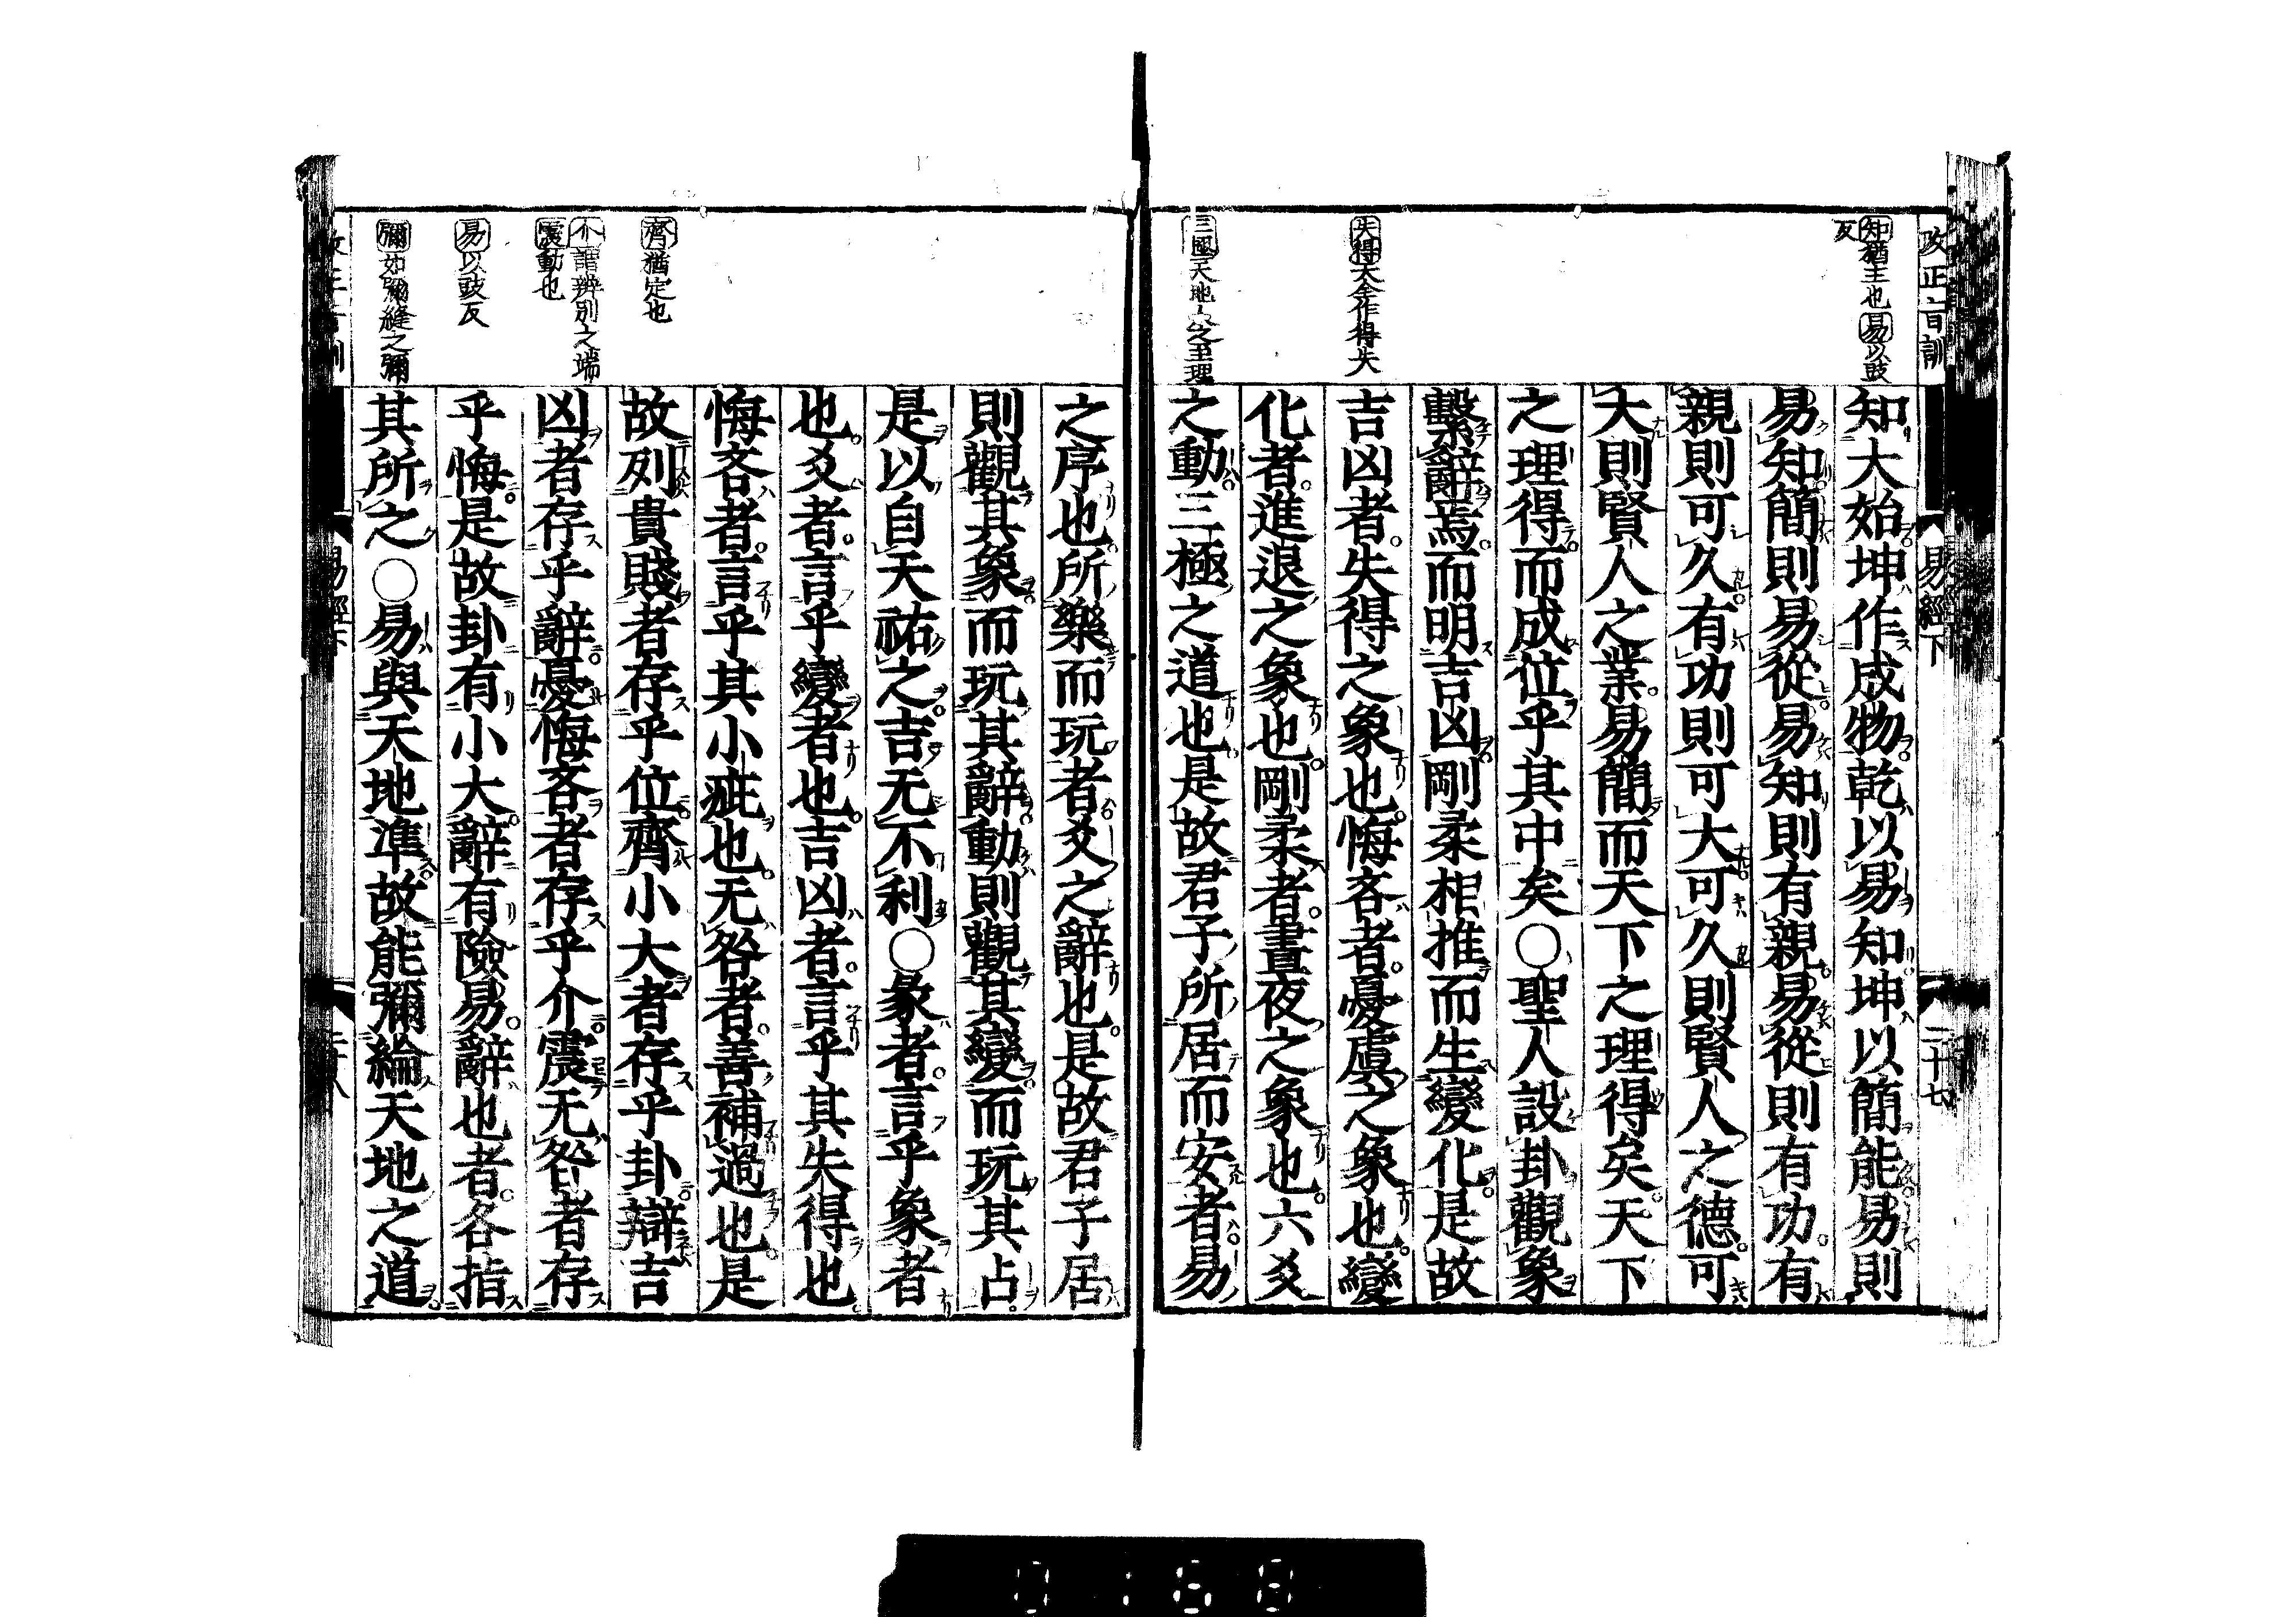 改正音訓
易經下
二十七
知猶主也 易以豉
反
失得大全作得失
三極天地人之至理
知大始坤作成物乾以易知坤以簡能易則
易知簡則易從易知則有親易從則有功有
親則可久有功則可大可久則賢人之德可
大則賢人之業易簡而天下之理得矣天下
之理得而成位乎其中矣○聖人設卦觀象
繫辭焉而明吉凶剛柔相推而生變化是故
吉凶者失得之象也悔吝者憂虞之象也變
化者進退之象也剛柔者晝夜之象也六爻
之動三極之道也是故君子所居而安者易
齊猶定也
介謂辨別之端
震動也
易以豉反
彌如彌縫之彌
之序也所樂而玩者爻之辭也是故君子居
則觀其象而玩其辭動則觀其變而玩其占
是以自天祐之吉无不利○彖者言乎象者
也爻者言乎變者也吉凶者言乎其失得也
悔吝者言乎其小疵也无咎者善補過也是
故列貴賤者存乎位齊小大者存乎卦辯吉
凶者存乎辭憂悔吝者存乎介震无咎者存
乎悔是故卦有小大辭有險易辭也者各指
其所之○易與天地準故能彌綸天地之道